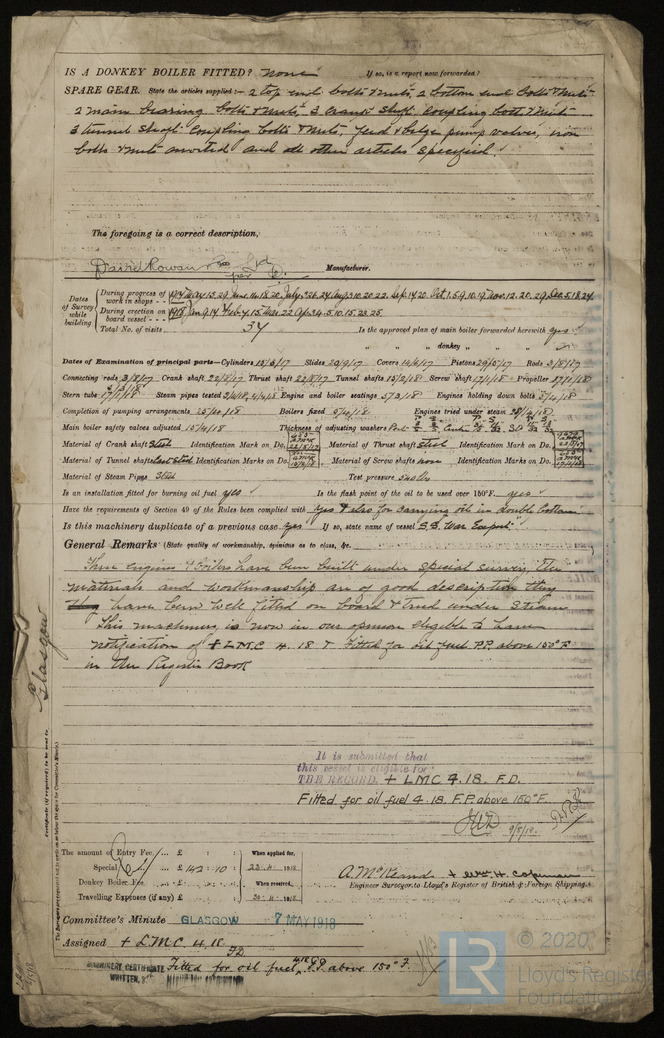 IS A DONKEY BOILER FITTED? none If so, is a report now forwarded?
SPARE GEAR. State the articles supplied:— 2 top end bolts & nuts, 2 bottom end bolts & nuts
2 main bearing bolts & nuts, 3 crank shaft coupling bolts & nuts
3 tunnel shaft coupling bolts & nuts, feed & bilge pump valves, iron
bolts & nuts assorted and all other articles specified.
The foregoing is a correct description,
David Rowan & Co Ltd
per Manufacturer.
Dates of Survey while building
During progress of work in shops - - 1917 May 15. 29 June 14. 18. 20. July 3. 26. 24 Aug 3. 10. 20. 22. Sep. 14. 20 Oct 1. 5. 9. 10. 19 Nov. 12. 20. 29 Dec. 5. 18. 24
During erection on board vessel - - - 1918 Jan 9. 14 Feb 4. 15 Mar. 22 Apr 3. 4. 5. 10. 15. 23. 25.
Total No. of visits 34 Is the approved plan of main boiler forwarded herewith yes
" " " donkey " " "
Dates of Examination of principal parts—Cylinders 13/8/17 Slides 20/9/17 Covers Pistons Rods 3/8/17
Connecting rods 3/8/17 Crank shaft 22/8/17 Thrust shaft 22/8/17 Tunnel shafts 15/2/18 Screw shaft 17/1/18 Propeller 17/1/18
Stern tube 17/1/18 Steam pipes tested Engine and boiler seatings 5/3/18 Engines holding down bolts 5/4/18
Completion of pumping arrangements 25/4/18 Boilers fixed 5/4/18 Engines tried under steam
Main boiler safety valves adjusted 15/4/18 Thickness of adjusting washers
Material of Crank shaft Steel Identification Mark on Do. Material of Thrust shaft Steel Identification Mark on Do.
Material of Tunnel shafts Steel Identification Marks on Do. Material of Screw shafts Identification Marks on Do.
Material of Steam Pipes Steel Test pressure 540 lbs
Is an installation fitted for burning oil fuel yes Is the flash point of the oil to be used over 150°F. yes
Have the requirements of Section 49 of the Rules been complied with yes & also for carrying oil in double bottom
Is this machinery duplicate of a previous case yes If so, state name of vessel S.S. War Expert
General Remarks (State quality of workmanship, opinions as to class, &c.
These engines & boilers have been built under special survey, the
materials and workmanship are of good description they
have been well fitted on board & tried under steam
This machinery is now in our opinion eligible to have
notification of + LMC 4. 18 & Fitted for oil fuel F.P. above 150°F
in the Register Book
Glasgow
It is submitted that
this vessel is eligible for
THE RECORD. + LMC 4. 18. F.D.
Fitted for oil fuel 4. 18. F.P. above 150°F.
The amount of Entry Fee .. £ : : When applied for,
Special .. .. £ 142 : 10 : 23. 4. 1918
Donkey Boiler Fee .. .. £ : : When received,
Travelling Expenses (if any) £ : : 1918
Engineer Surveyor to Lloyd's Register of British & Foreign Shipping.
Committee's Minute GLASGOW 7 MAY 1918
Assigned + LMC 4. 18
F.D.
MACHINERY CERTIFICATE
WRITTEN
Fitted for oil fuel, 4.18 F.P. above 150°F.
© 2020
LR
Lloyd's Register
Foundation